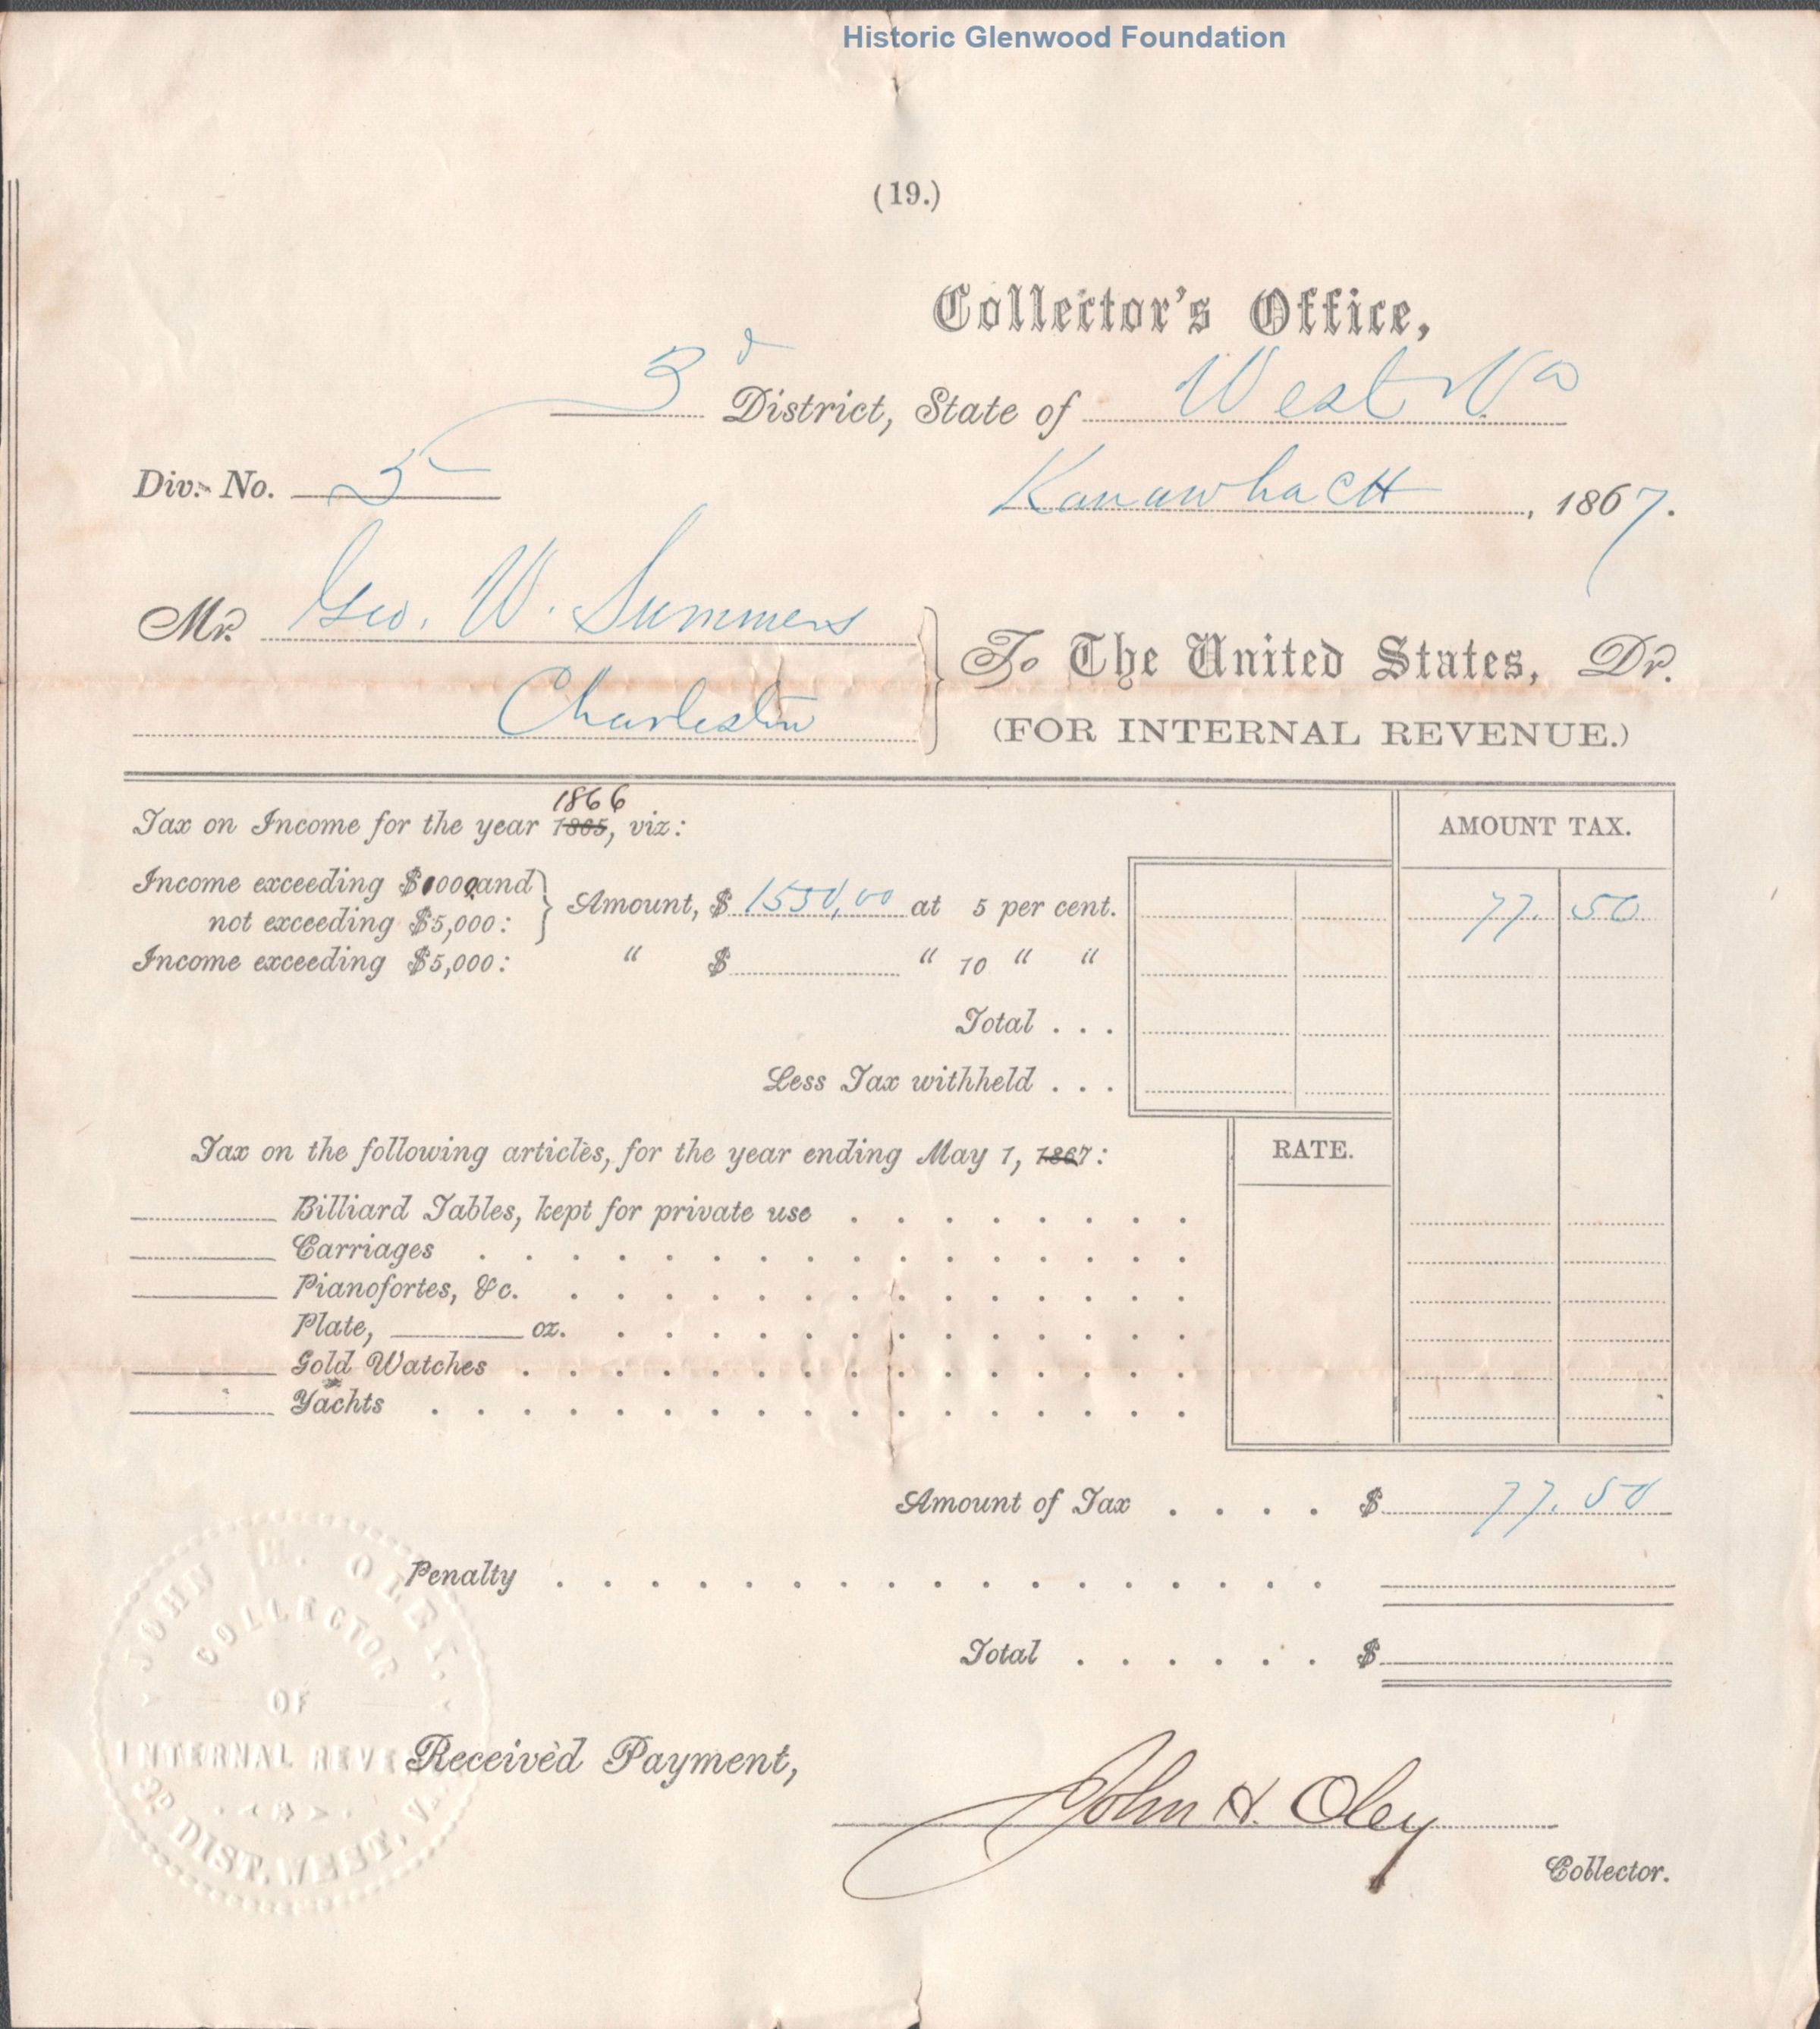 Historic Glenwood Foundation
(19.)
Collector's Office,
3d District, State of West Va
Div. No. 5
Kanawha CH, 1867.
Mr. Geo. W. Summers
Charleston
To The United States, Dr.
(FOR INTERNAL REVENUE.)
1866
Tax on Income for the year 1865, viz:
AMOUNT TAX.
Income exceeding $1000 and
not exceeding $5,000:
Amount, $ 1550,00 at 5 per cent. 77. 50
Income exceeding $5,000: " $ " 10 " "
Total . . .
Less Tax withheld . . .
Tax on the following articles, for the year ending May 1, 1867:
RATE.
Billiard Tables, kept for private use . . . . . . . .
Carriages . . . . . . . . . . . . . . . .
Pianofortes, &c. . . . . . . . . . . . . . .
Plate, oz. . . . . . . . . . . . . .
Gold Watches . . . . . . . . . . . . . . .
Yachts . . . . . . . . . . . . . . . . .
Amount of Tax . . . . $ 77. 50
Penalty . . . . . . . . . . . . . . . . .
Total . . . . . . $
JOHN H. OLEY.
COLLECTOR
OF
INTERNAL REVE
3D DIST. WEST. VA.
Received Payment,
John H. Oley
Collector.